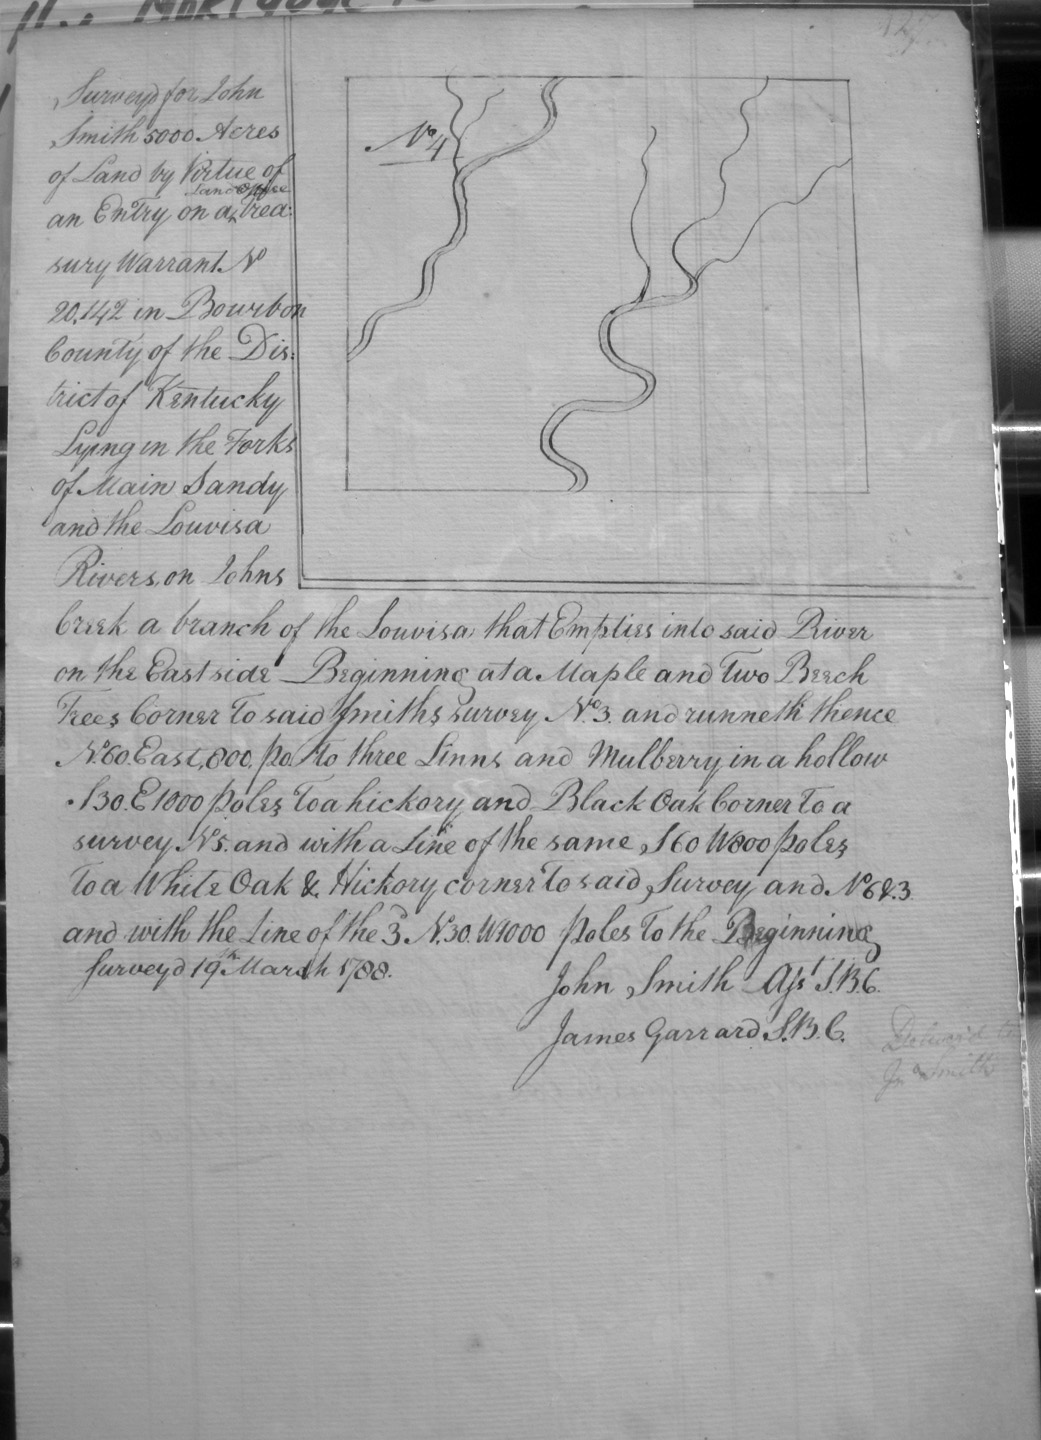 Mortgage
Survey'd for John
Smith 5000 Acres
of Land by Virtue of
Land office
an Entry on a ‸ trea:
sury Warrant No
20,142 in Bourbon
County of the Dis:
trict of Kentucky
Lying in the Forks
of Main Sandy
and the Louvisa
Rivers, on Johns
No 4
Creek a branch of the Louvisa that Empties into said River
on the East side Beginning at a Maple and Two Beech
Trees Corner To said Smiths survey No 3. and runneth thence
N.60. East, 800, po. To three Linns and Mulberry in a hollow
S30. E 1000 poles To a hickory and Black Oak Corner To a
survey No 5. and with a Line of the same S60 W800 poles
To a White Oak & Hickory corner To said Survey and No 6 & 3
and with the Line of the 3d N.30. W1000 poles To the Beginning
Survey'd 19th March 1788.
John Smith Asst S.B.C.
James Garrard S.B.C.
Deliver'd to
Jno Smith